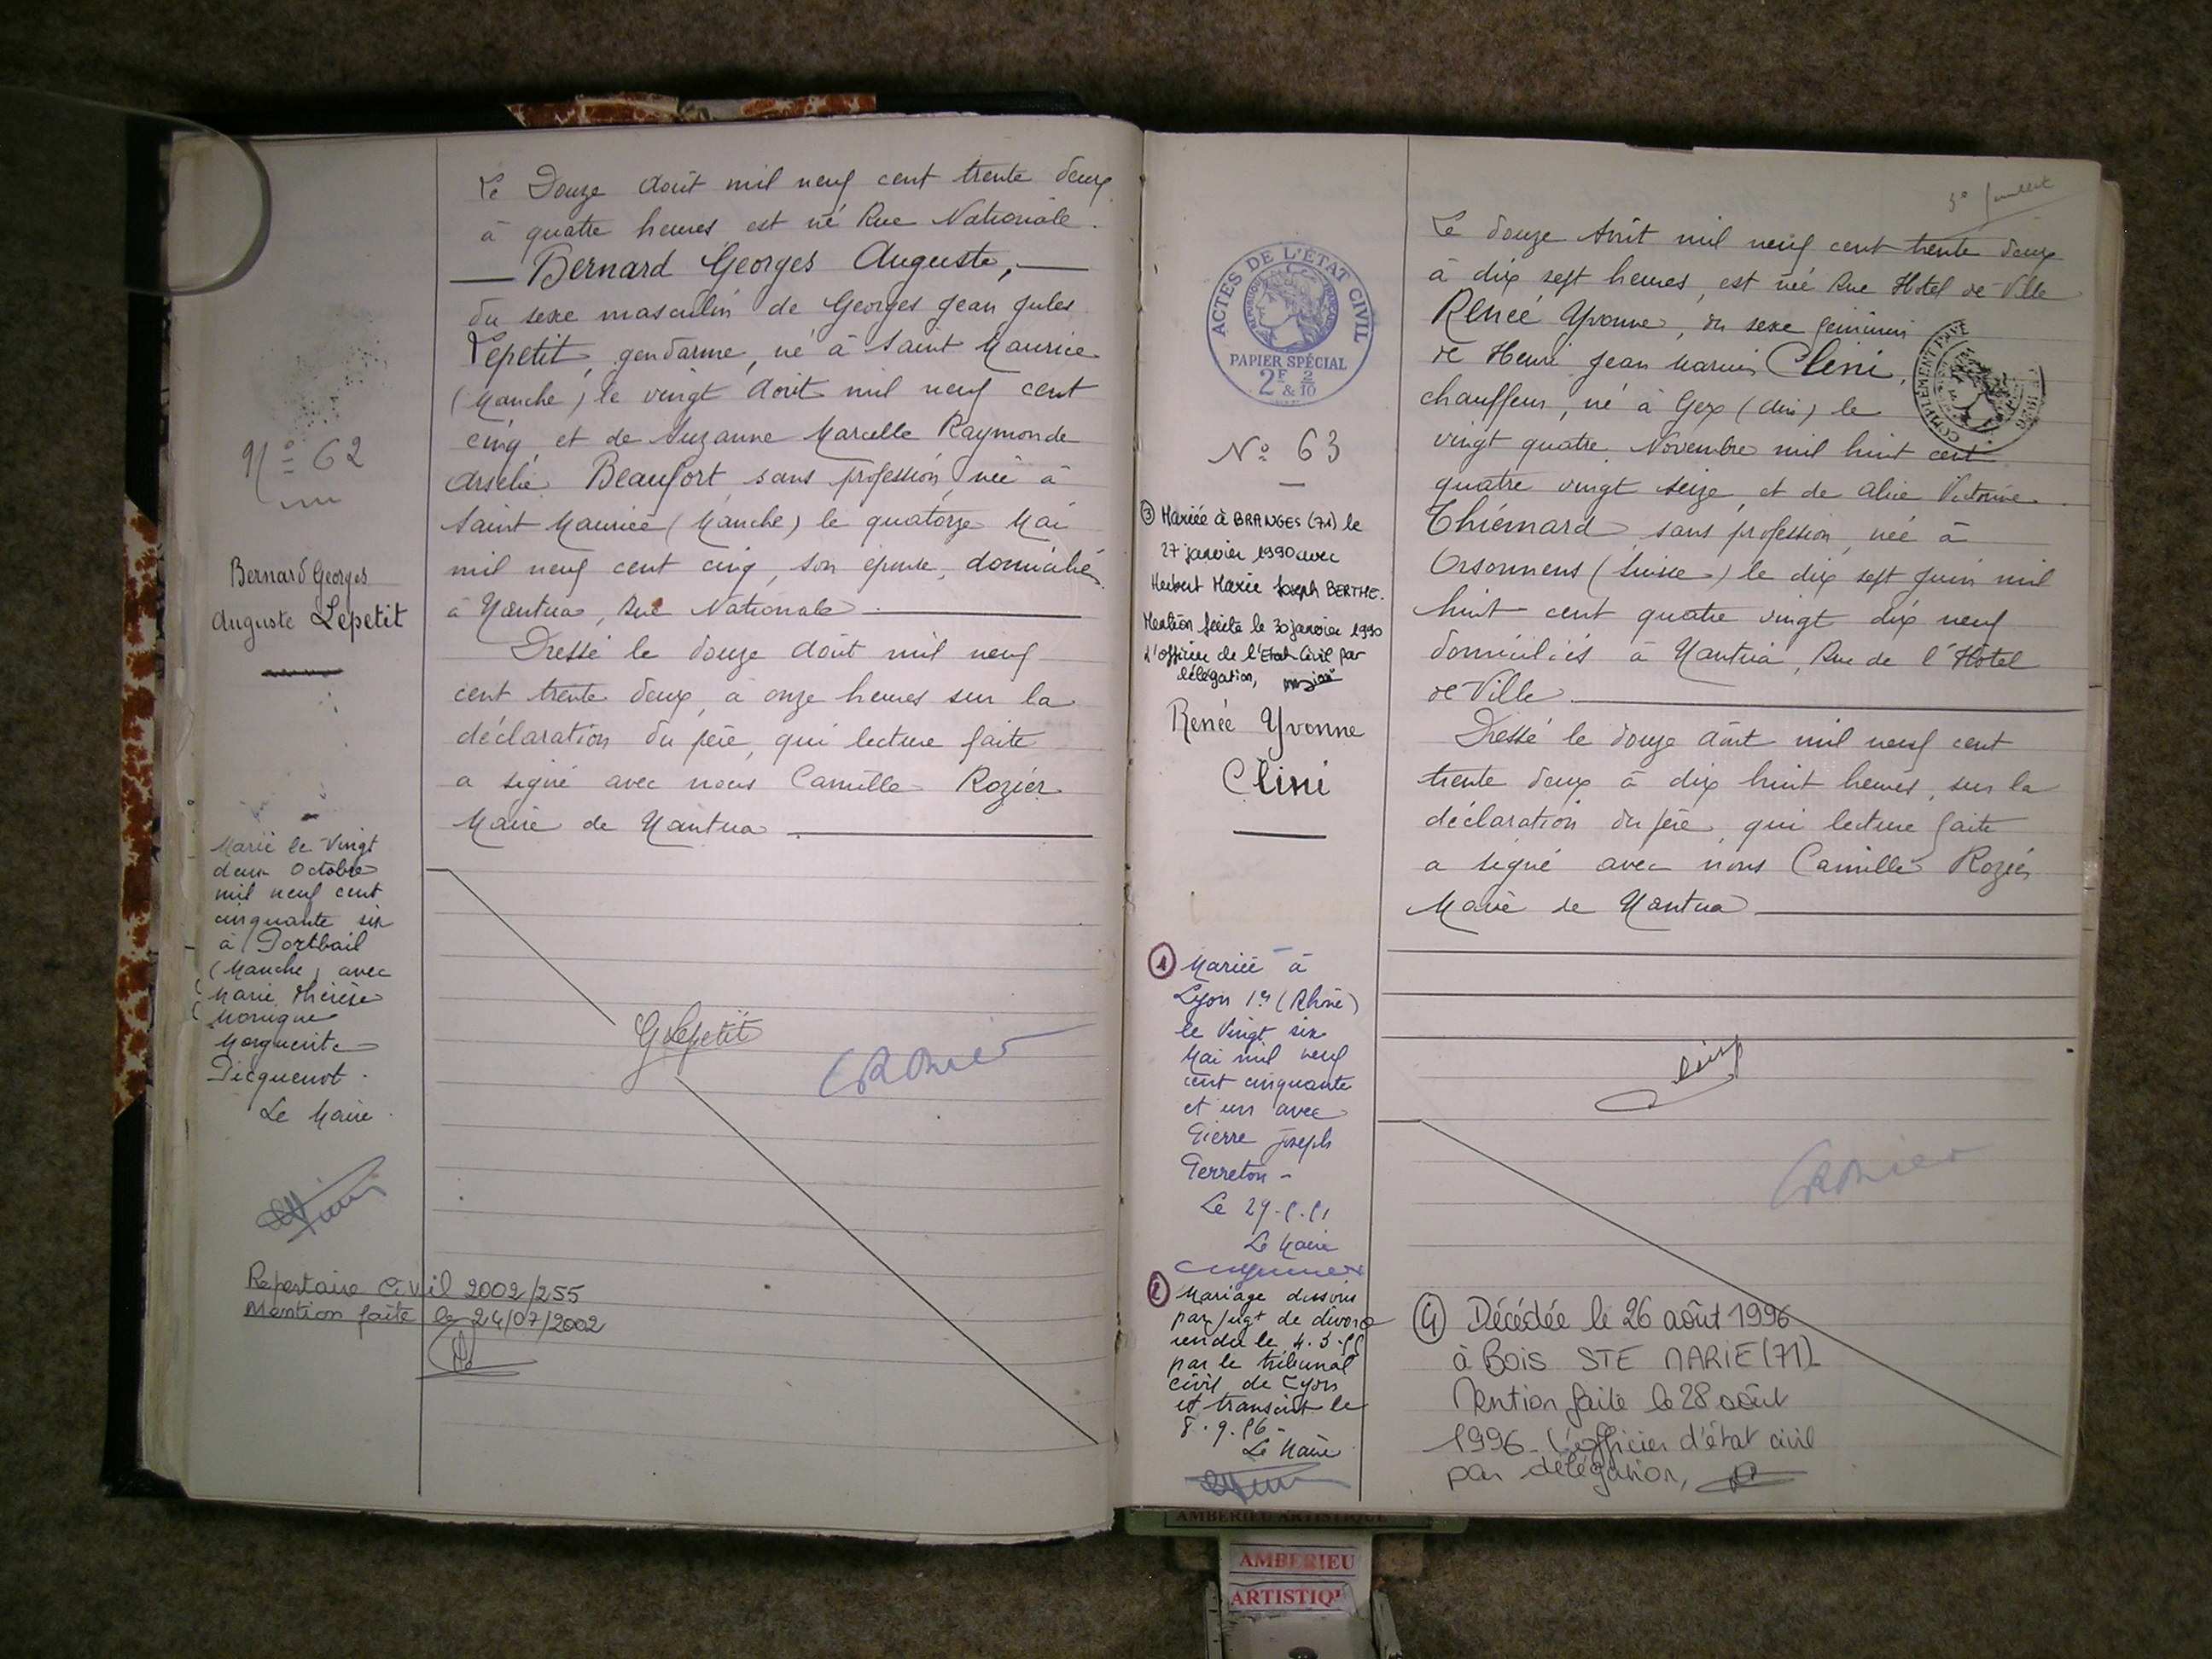 N° 62
Bernard Georges
Auguste Lepetit
Marié le Vingt
deux Octobre
mil neuf cent
cinquante six
à Portbail
(Manche) avec
Marie Thérèse
Monique
Marguerite
Picquenot.
Le Maire.
Repertoire Civil 2002/255
Mention faite le 24/07/2002
Le Douze Août mil neuf cent trente deux
à quatre heures est né Rue Nationale.
Bernard Georges Auguste,
du sexe masculin de Georges Jean Jules
Lepetit, gendarme, né à Saint Maurice
(Manche) le vingt Août mil neuf cent
cinq, et de Suzanne Marcelle Raymonde
Beaufort, sans profession, née à
Saint Maurice (Manche) le quatorze Mai
mil neuf cent cinq, son épouse, domiciliés
à Nantua, Rue Nationale.
Dressé le douze Août mil neuf
cent trente deux, à onze heures sur la
déclaration du père, qui lecture faite
a signé avec nous Camille Rozier
Maire de Nantua
GLepetit
CRozier
ACTES DE L'ÉTAT CIVIL
RÉPUBLIQUE FRANÇAISE
PAPIER SPÉCIAL
2F & 2/10
N° 63
③ Mariée à BRANGES (71) le
27 janvier 1990 avec
Herbert Marie Joseph BERTHE.
Mention faite le 30 janvier 1990
L'officier de l'Etat Civil par
délégation,
Renée Yvonne
Clini
① Mariée à
Lyon 1er (Rhône)
le Vingt six
Mai mil neuf
cent cinquante
et un avec
Pierre Joseph
Perreton -
Le 29.5.51
Le Maire
② Mariage dissous
par jugt de divorce
rendu le 4.3.55
par le tribunal
civil de Lyon
et transcrit le
8.9.56 -
Le Maire
3e Juillet
Le douze Août mil neuf cent trente deux
à dix sept heures, est née Rue Hotel de Ville
Renée Yvonne, du sexe féminin
de Henri Jean Marius Clini,
chauffeur, né à Gex (Ain) le
vingt quatre Novembre mil huit cent
quatre vingt seize, et de Alice Victorine
Thiémard, sans profession, née à
Orsonnens (Suisse) le dix sept Juin mil
huit cent quatre vingt dix neuf
domiciliés à Nantua, Rue de l'Hôtel
de Ville
Dressé le douze Août mil neuf cent
trente deux à dix huit heures, sur la
déclaration du père, qui lecture faite
a signé avec nous Camille Rozier
Maire de Nantua
COMPLÉMENT
Clini
CRozier
④ Décédée le 26 août 1996
à BOIS STE MARIE (71)
Mention faite le 28 août
1996. L'officier d'état civil
par délégation,
AMBERIEU ARTISTIQUE
AMBERIEU
ARTISTIQU